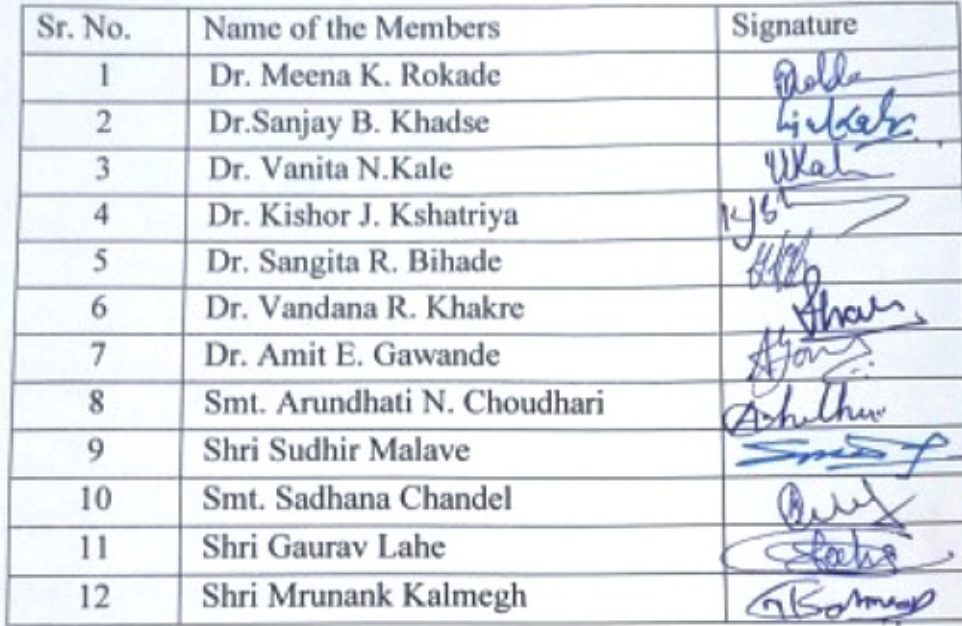 Sr. No. Name of the Members Signature
1 Dr. Meena K. Rokade
2 Dr.Sanjay B. Khadse
3 Dr. Vanita N.Kale
4 Dr. Kishor J. Kshatriya
5 Dr. Sangita R. Bihade
6 Dr. Vandana R. Khakre
7 Dr. Amit E. Gawande
8 Smt. Arundhati N. Choudhari
9 Shri Sudhir Malave
10 Smt. Sadhana Chandel
11 Shri Gaurav Lahe
12 Shri Mrunank Kalmegh